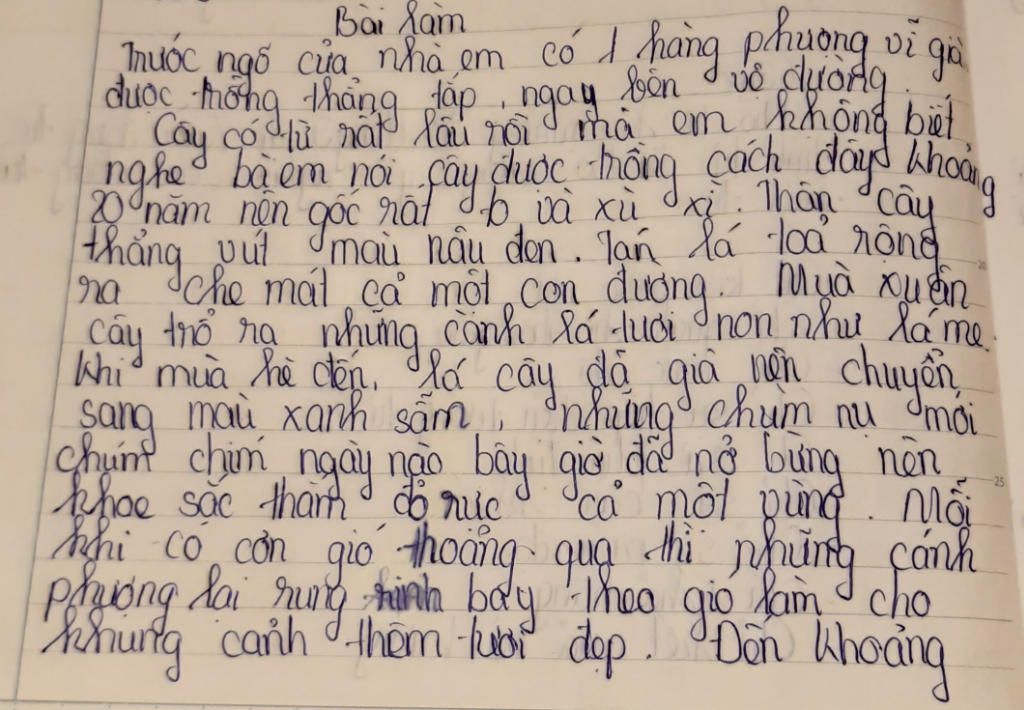 Bài làm
Trước ngõ của nhà em có 1 hàng phượng vĩ già
được trồng thẳng tắp, ngay bên vệ đường.
Cây có từ rất lâu rồi mà em không biết
nghe bà em nói cây được trồng cách đây khoảng
20 năm nên gốc rất to và xù xì. Thân cây
thẳng vút màu nâu đen. Tán lá toả rộng
ra che mát cả một con đường. Mùa xuân
cây trổ ra những cành lá tươi non như lá me.
Khi mùa hè đến, lá cây đã già nên chuyển
sang màu xanh sẫm, những chùm nụ mới
chúm chím ngày nào bây giờ đã nở bừng nên
khoe sắc thắm đỏ rực cả một vùng. Mỗi
khi có cơn gió thoảng qua thì những cánh
phượng lại rung rinh bay theo gió làm cho
khung cảnh thêm tươi đẹp. Đến khoảng
25